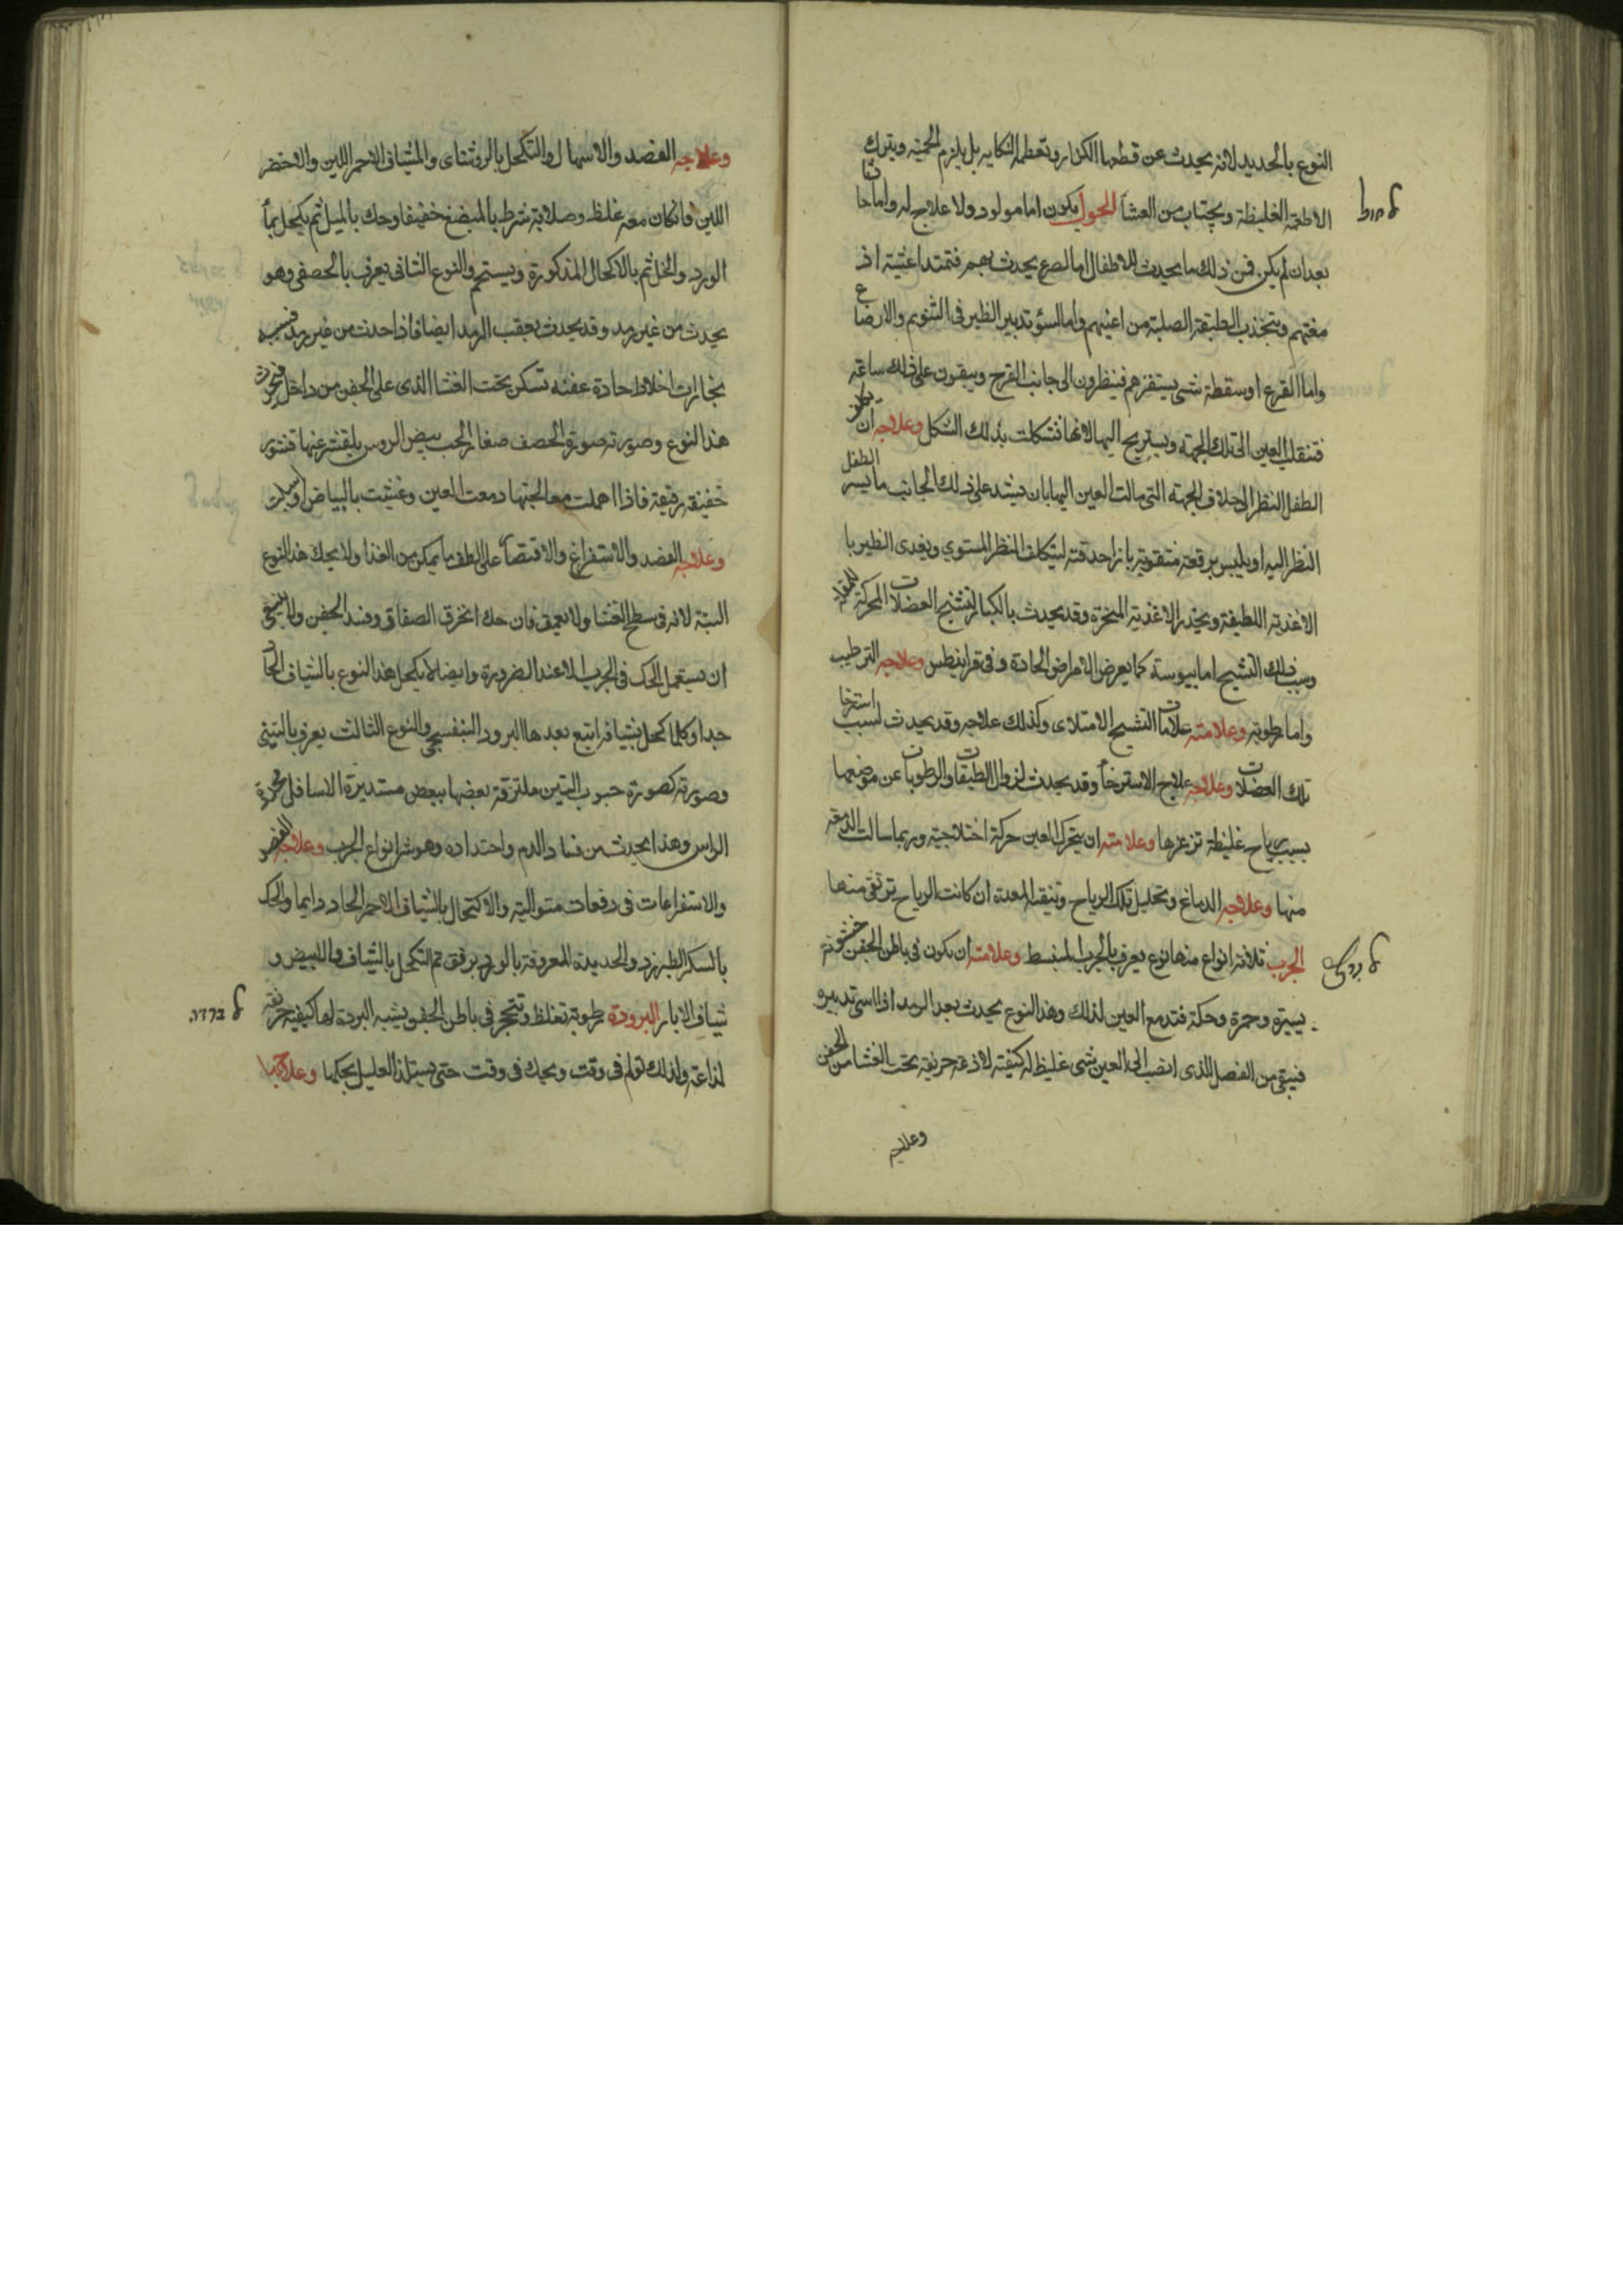 النوع بالحديد لانه يحدث عن قطعها الكزاز وتعظم النكايه بل يلزم الحميه ويترك
الاطعمة الغليظة ويجتناب من العشأ الحول يكون اما مولود ولا علاج له واما حادثا
بعد ان لم يكن فمن ذلك ما يحدث للاطفال اما لصرع يحدث بهم فتمتد اغشية اد
مغتهم وتنجذب الطبقة الصلبة من اعينهم واما لسؤ تدبير الظير فى التنويم والارضاع
واما لقرع او سقطة شى يستفزهم فينظرون الى جانب القرح ويبقون على ذلك ساعة
فتنقلب العين الى تلك الجهة ويستريح اليها لانها تشكلت بذلك الشكل وعلاجه ان
الطفل النظر الى خلاف الجهة التى مالت العين اليها بان يشد على ذلك الجانب ما يسر الطفل
النظر اليه او يلبس برقعة متقوبة بازا حدقته ليتكلف النظر المستوي ويغدى الظير با
الاغذية اللطيفة ويحذر الاغذية المبخرة وقد يحدث بالكبار لتشنج العضلات المحركة للمقلة
وسبب ذلك التشنج اما يبوسة كما يعرض الامراض الحادة وفى قرانيطس وعلاجه الترطيب
واما رطوبة وعلامته علامات التشنج الامتلاى وكذلك علاجه وقد يحدث لسبب استرخا
تلك العضلات وعلاجه علاج الاسترخأ وقد يحدث لزوال الطبقات والرطوبات عن موضعها
بسبب رياح غليظة تزعزها وعلامته ان يتحرك العين حركة اختلاجية وربما سالت الدمعة
منها وعلاجه الدماغ وتحليل تلك الرياح وتنقية المعدة ان كانت الرياح ترتقى منها
الجرب ثلاثة انواع منها نوع يعرف بالجرب المنبسط وعلامته ان يكون فى باطن الجفن خشونة
يسيرة وحمرة وحكة فتدمع العين لذلك وهذا النوع يحدث بعد الرمد اذا اسى تدبيره
فيبقى من الفصل الذى انصب الى العين شى غليظ له كيفية لاذعة حريفة تحت الغشا من الجفن
وعلاجه
وعلاجه الفصد والاسهال والتكحل بالروشناى والشياف الاحمر اللين والاخضر
اللين فانكان معه غلظ وصلابة شرط بالمبضع خفيفا وحك بالميل ثم يكحل بمأ
الورد والخل ثم بالاكحال المذكورة ويستحم والنوع الثانى يعرف بالحصفى وهو
يحدث من غير رمد وقد يحدث بعقب الرمد ايضا فاذا حدث من غير رمد فسببه
بخارات اخلاط حادة عفنه تسكن تحت الغشا الذى على الجفن من داخل فيحدث
هذا النوع وصورته صورة الحصف صغار الحب بيض الروس يلقشر عنها قشور
خفيفة رقيقة فاذا اهملت معالجتها دمعت العين وغشيت بالبياض او سبلت
وعلاجه الفصد والاستفراغ والاقتصأ على الطف ما يمكن من الغذا ولا يحك هذا النوع
البتة لانه فى سطح الغشا ولا تعمق فان حك انخرق الصفاق وفسد الجفن ولا ينبغى
ان يستعمل الحك فى الجرب الا عند الضرورة وايضا لا يكحل هذا النوع بالشياف الحاد
جدا وكلما كحل بشياف اتبع بعدها البرود البنفسجى والنوع الثالث يعرف بالتينى
وصورته كصورة حبوب التين ملتزقة بعضها ببعض مستديرة الاسافل محددة
الراس وهذا يحدث من فساد الدم واحتداده وهو شر انواع الجرب وعلاجه الفصد
والاستفراغات فى دفعات متوالية والاكتحال بالشياف الاحمر الحاد دايما والحك
بالسكر الطبرزد والحديدة المعروفة بالوردة برفق ثم التكحل بالشياف والابيض و
شياف الابار البرودة رطوبة تغلظ وتتحجر فى باطن الجفن يشبه البردة لها كيفية حريفة
لذاعة ولذلك تولم فى وقت ويحك فى وقت حتى يستلذ العليل بحكها وعلاجها